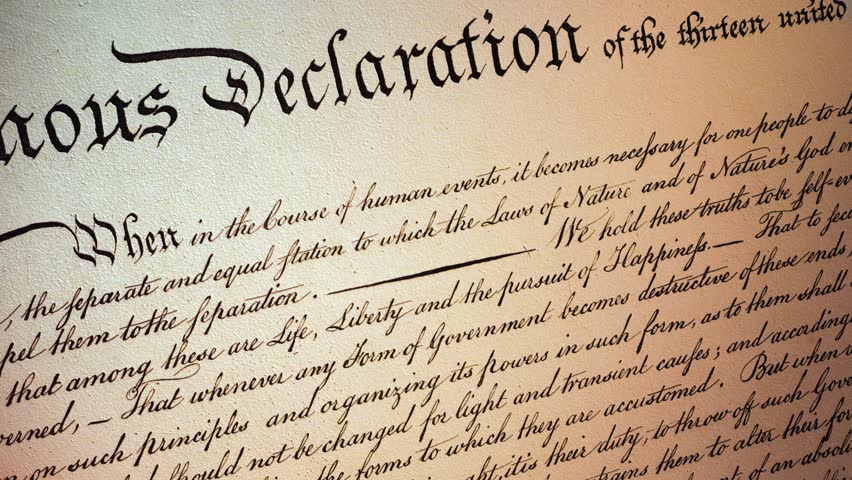 aous Declaration of the thirteen united
When in the Course of human events, it becomes neceſsary for one people to di
, the ſeparate and equal ſtation to which the Laws of Nature and of Nature's God en
pel them to the ſeparation. ——— We hold these truths to be ſelf-ev
that among these are Life, Liberty and the pursuit of Happineſs.— That to ſec
verned, — That whenever any Form of Government becomes destructive of these ends,
on such principles and organizing its powers in such form, as to them shall
ſhould not be changed for light and transient cauſes; and according
the forms to which they are accustomed. But when a
ght, it is their duty, to throw off such Gover
trains them to alter their for
of an absolu